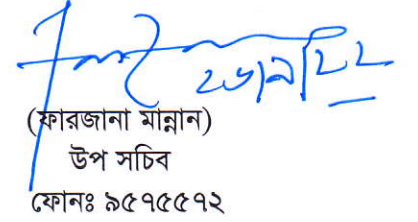 (ফারজানা মান্নান)
উপ সচিব
ফোনঃ ৯৫৭৫৫৭২